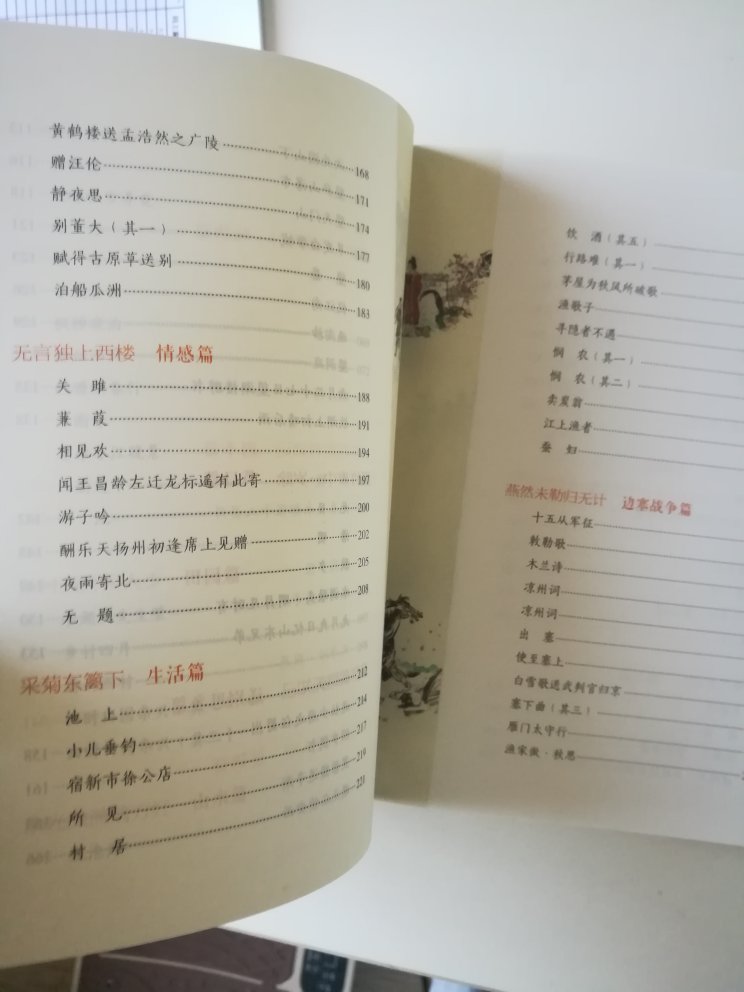 黄鹤楼送孟浩然之广陵……168
赠汪伦……171
静夜思……174
别董大（其一）……177
赋得古原草送别……180
泊船瓜洲……183
无言独上西楼 情感篇
关 雎……188
蒹 葭……191
相见欢……194
闻王昌龄左迁龙标遥有此寄……197
游子吟……200
酬乐天扬州初逢席上见赠……202
夜雨寄北……205
无 题……208
采菊东篱下 生活篇
池 上……212
小儿垂钓……214
宿新市徐公店……217
所 见……219
村 居……221
饮 酒（其五）……
行路难（其一）……
茅屋为秋风所破歌……
渔歌子……
寻隐者不遇……
悯 农（其一）……
悯 农（其二）……
卖炭翁……
江上渔者……
蚕 妇……
燕然未勒归无计 边塞战争篇
十五从军征……
敕勒歌……
木兰诗……
凉州词……
凉州词……
出 塞……
使至塞上……
白雪歌送武判官归京……
塞下曲（其三）……
雁门太守行……
渔家傲·秋思……